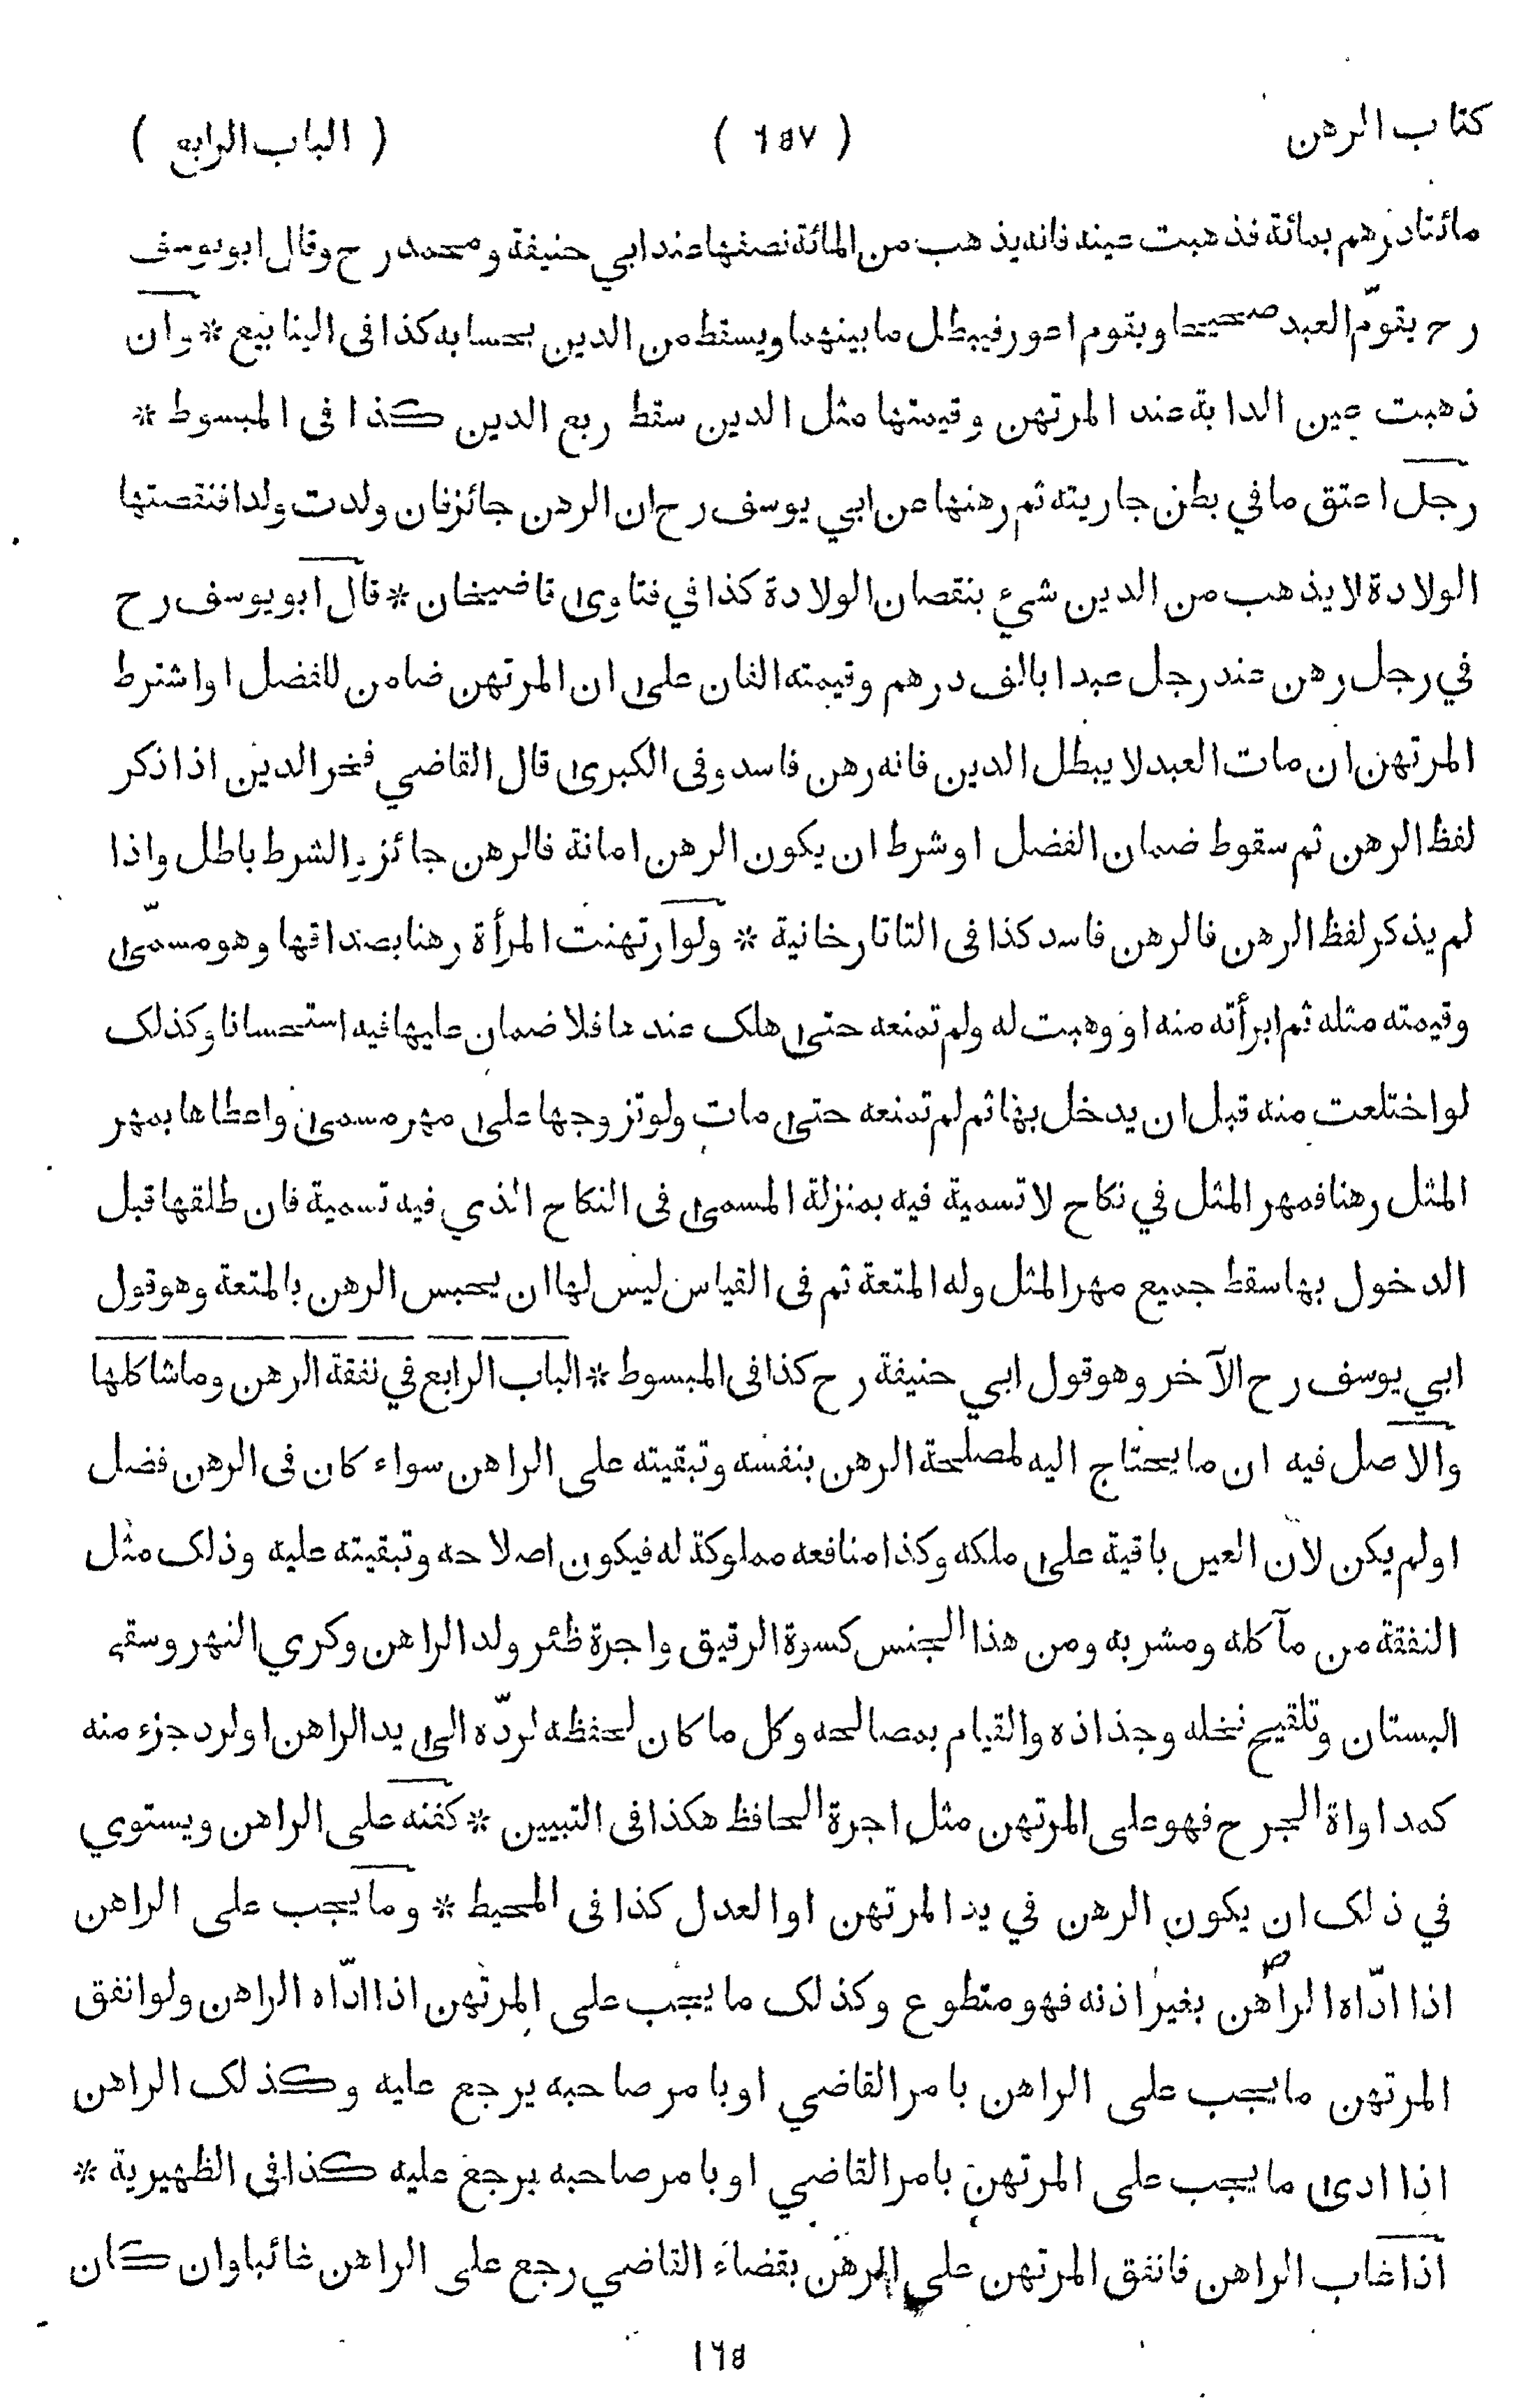 كتاب الرهن ( ٦٥٧ ) ( الباب الرابع )
مائتا درهم بمائة فذهبت عينه فانه يذهب من المائة نصفها عند ابي حنيفة و محمد رح وقال ابو يوسف
رح يقوّم العبد صحيحا ويقوم اعور فيبطل ما بينهما ويسقط من الدين بحسابه كذا في الينابيع * وان
ذهبت عين الدابة عند المرتهن وقيمتها مثل الدين سقط ربع الدين كذا في المبسوط *
رجل اعتق ما في بطن جاريته ثم رهنها عن ابي يوسف رح ان الرهن جائز فان ولدت ولدا فنقصتها
الولادة لا يذهب من الدين شيء بنقصان الولادة كذا في فتاوى قاضيخان * قال ابو يوسف رح
في رجل رهن عند رجل عبدا بالف درهم وقيمته الفان على ان المرتهن ضامن للفضل او اشترط
المرتهن ان مات العبد لا يبطل الدين فانه رهن فاسد وفي الكبرى قال القاضي فخر الدين اذا ذكر
لفظ الرهن ثم سقوط ضمان الفضل او شرط ان يكون الرهن امانة فالرهن جائز والشرط باطل واذا
لم يذكر لفظ الرهن فالرهن فاسد كذا في التاتارخانية * ولو ارتهنت المرأة رهنا بصداقها وهو مسمّى
وقيمته مثله ثم ابرأته منه او وهبت له ولم تمنعه حتى هلك عندها فلا ضمان عليها فيه استحسانا وكذلك
لو اختلعت منه قبل ان يدخل بها ثم لم تمنعه حتى مات ولو تزوجها على مهر مسمى واعطاها بمهر
المثل رهنا فمهر المثل في نكاح لا تسمية فيه بمنزلة المسمى في النكاح الذي فيه تسمية فان طلقها قبل
الدخول بها سقط جميع مهر المثل وله المتعة ثم في القياس ليس لها ان يحبس الرهن بالمتعة وهو قول
ابي يوسف رح الآخر وهو قول ابي حنيفة رح كذا في المبسوط * الباب الرابع في نفقة الرهن وما شاكلها
والاصل فيه ان ما يحتاج اليه لمصلحة الرهن بنفسه وتبقيته على الراهن سواء كان في الرهن فضل
او لم يكن لان العين باقية على ملكه وكذا منافعه مملوكة له فيكون اصلاحه وتبقيته عليه وذلك مثل
النفقة من مآكله ومشربه ومن هذا الجنس كسوة الرقيق واجرة ظئر ولد الراهن وكري النهر وسقي
البستان وتلقيح نخله وجذاذه والقيام بمصالحه وكل ما كان لحفظه لردّه الى يد الراهن او لرد جزء منه
كمداواة الجرح فهو على المرتهن مثل اجرة الحافظ هكذا في التبيين * كفنه على الراهن ويستوي
في ذلك ان يكون الرهن في يد المرتهن او العدل كذا في المحيط * وما يجب على الراهن
اذا ادّاه الراهن بغير اذنه فهو متطوع وكذلك ما يجب على المرتهن اذا ادّاه الراهن ولو انفق
المرتهن ما يجب على الراهن بامر القاضي او بامر صاحبه يرجع عليه وكذلك الراهن
اذا ادى ما يجب على المرتهن بامر القاضي او بامر صاحبه يرجع عليه كذا في الظهيرية *
اذا غاب الراهن فانفق المرتهن على الرهن بقضاء القاضي رجع على الراهن غائبا وان كان
١٦٥